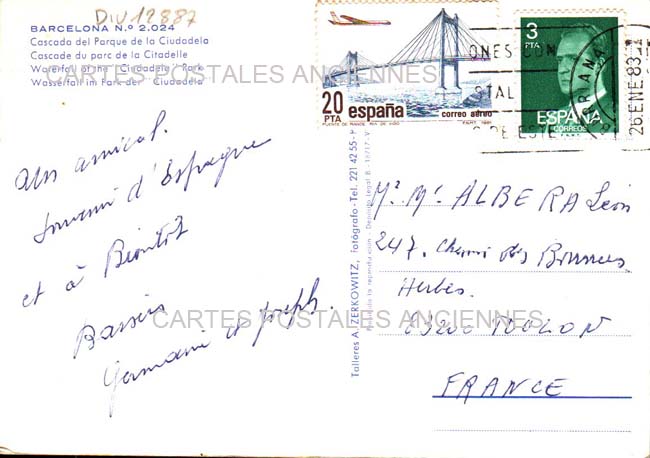 DIV12887
BARCELONA N.º 2.024
Cascada del Parque de la Ciudadela
Cascade du parc de la Citadelle
Waterfall of the Ciudadela Park
Wasserfall im Park der Ciudadela
CARTES POSTALES ANCIENNES
20
PTA
españa
correo aéreo
PUENTE DE RANDE. RIA DE VIGO
F.N.M.T. 1981
3
PTA
ESPAÑA
CORREOS
F.N.M.T.
ONES CON
STAL
DE ESTE
26 ENE 83
Un amical
souvenir d'Espagne
et à Bientôt
Baisers
Germaine et Joseph.
Talleres A. ZERKOWITZ, fotógrafo - Tel. 221 42 55
Depósito Legal B.
Mr. Me. ALBERA Léon
247. Chemin des
Herbes.
83200 TOULON
CARTES POSTALES ANCIENNES
FRANCE